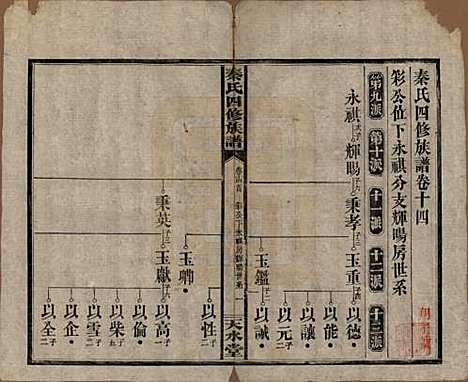 秦氏四修族譜卷十四
彩公位下永祺分支輝暘房世系
第九派
第十派
十一派
十二派
十三派
永祺
輝暘
秉孝
玉重
以德
以能
以讓
以元
玉鑑
以誠
秦氏四修族譜
天水堂
玉聘
以性
秉英
玉獻
以高
以倫
以柴
以雪
以企
以全